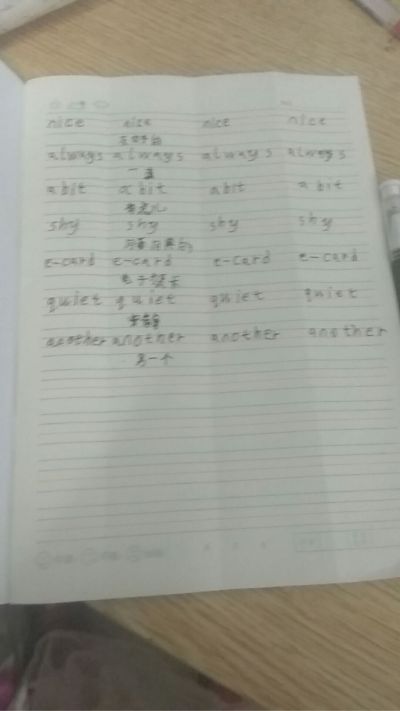 nice nice nice nice
always always always always
一直
a bit a bit a bit a bit
有点儿
shy shy shy shy
e-card e-card e-card e-card
电子贺卡
quiet quiet quiet quiet
安静
another another another another
另一个